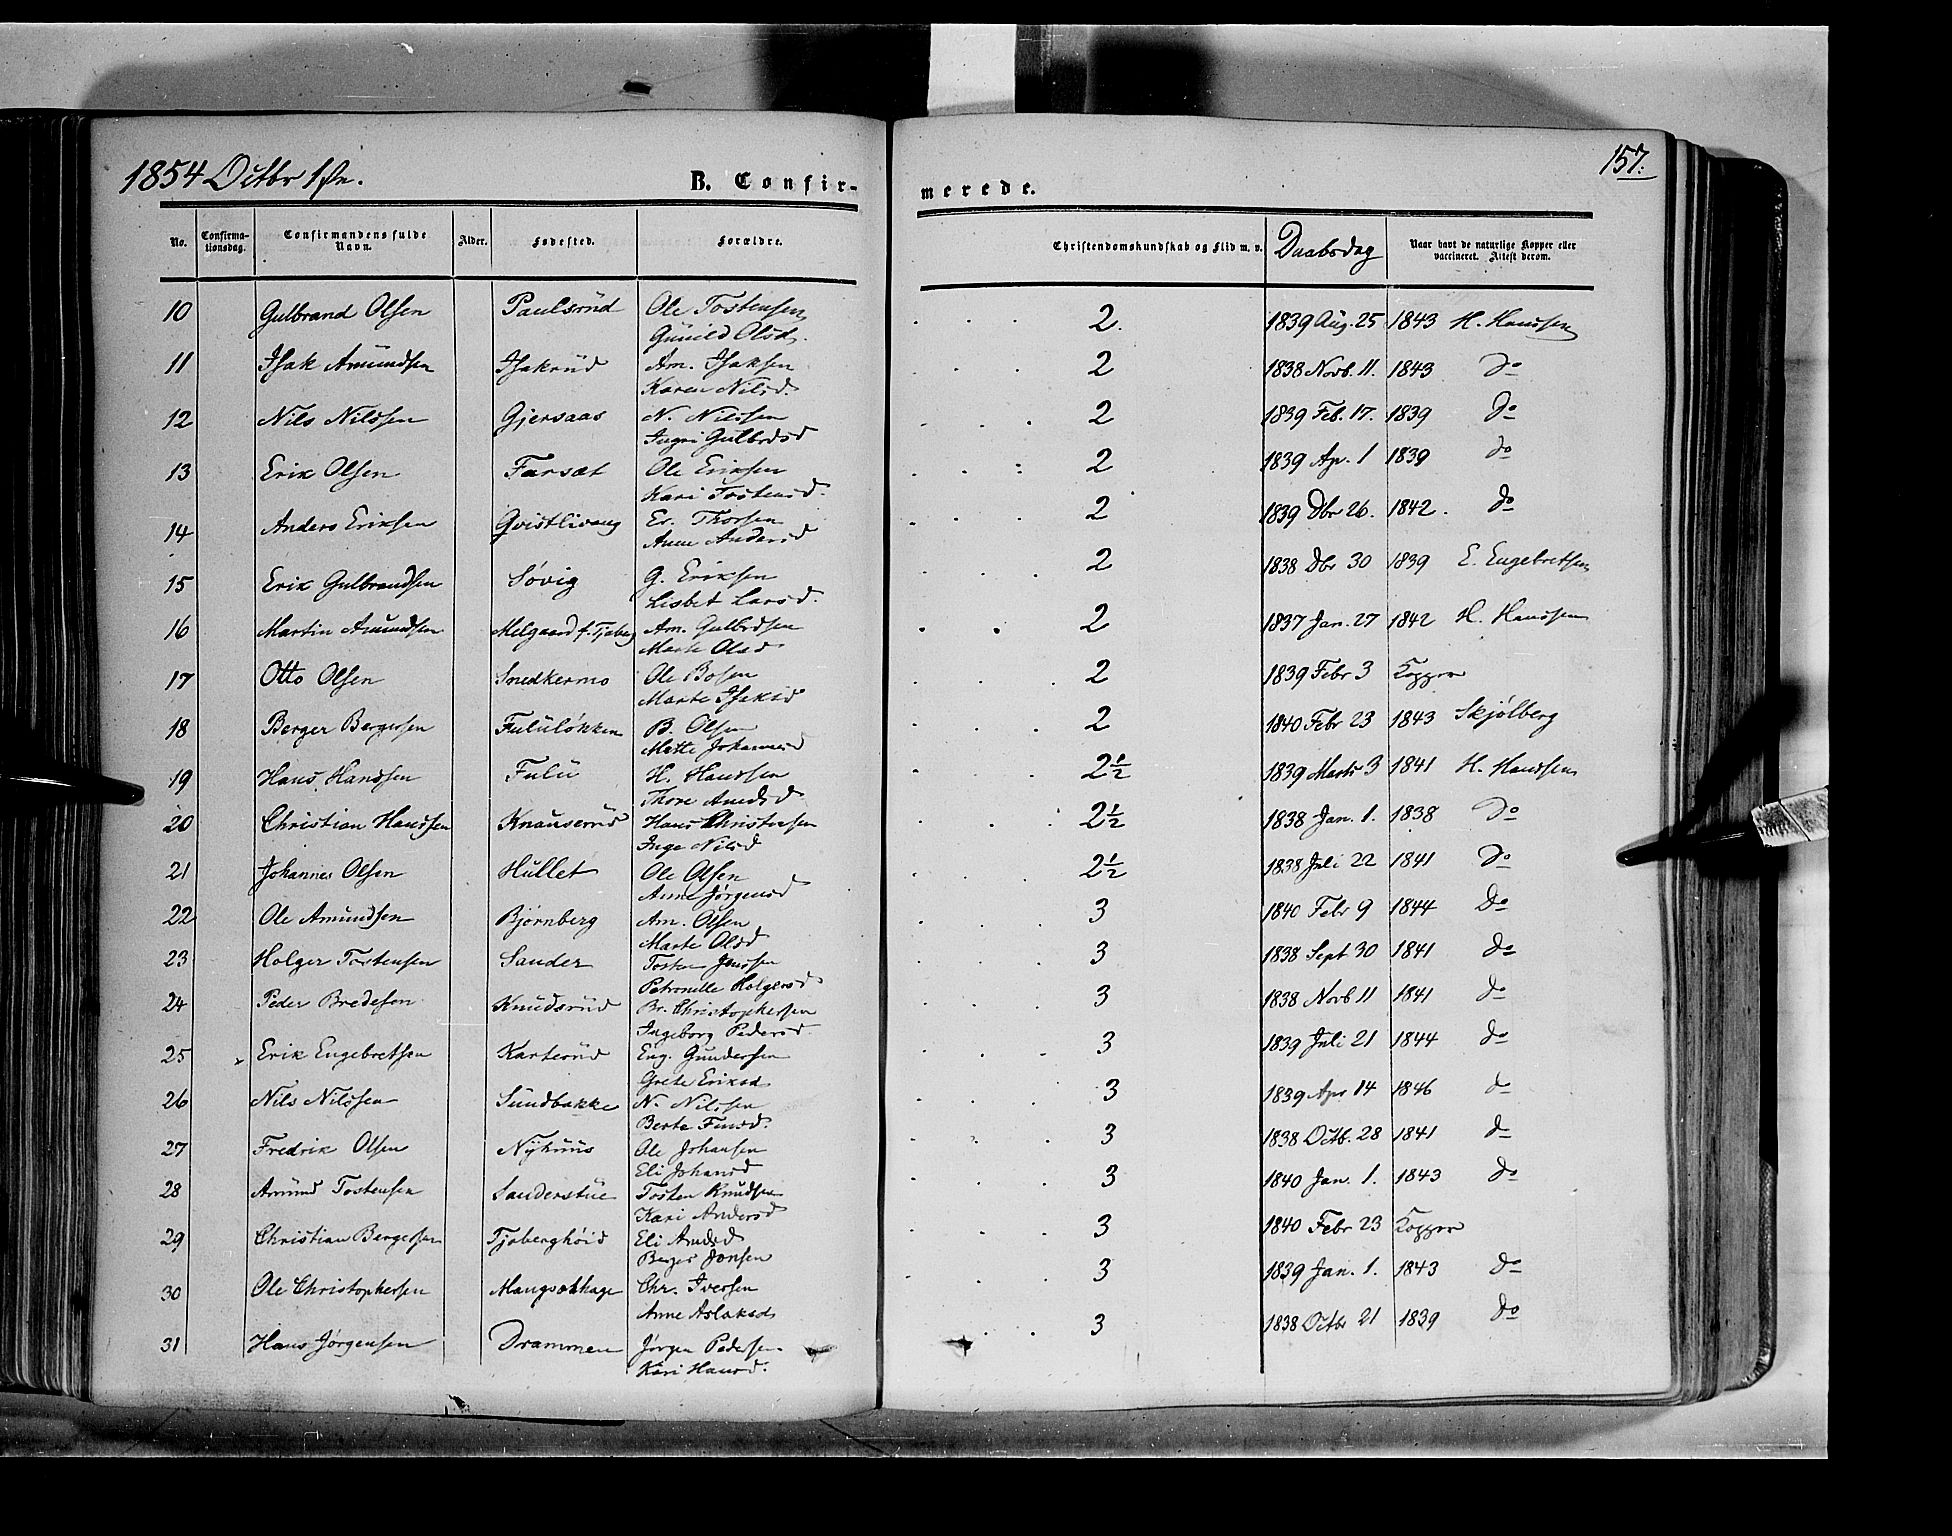 1854 Octbr 1ste. B. Confir- merede. 157.
No. Confirma-tionsdag. Confirmandens fulde Navn. Alder. Fødested. Forældre. Christendomskundskab og Flid m. v. Daabsdag Naar havt de naturlige Kopper eller vaccineret. Attest derom.
10 Gulbrand Olsen Paulsrüd Ole Tostensen 2. 1839 Aug. 25 1843 H. Hanssen
Günild Olsd.
11 Isak Amündsen Isakrüd Am. Isaksen 2 1838 Novb. 11. 1843 Do
Karen Nilsd.
12 Nils Nilssen Gjersaas N. Nilssen 2 1839 Feb. 17. 1839 Do
Ingri Gulbdsd
13 Erik Olsen Farsæt Ole Eriksen 2 1839 Ap. 1 1839 do
Kari Tostensd.
14 Anders Eriksen Qvistlivang Er. Thorsen 2 1839 Dbr 26. 1842. do
Anne Andersd
15 Erik Gulbrandsen Søvig G. Eriksen 2 1838 Dbr 30 1839 E. Engebretsen
Lisbet Larsd.
16 Martin Amundsen Melgaard f. Tjøberg Am. Gulbdsen 2 1837 Jan. 27 1842 H. Hanssen
Marte Olsd
17 Otto Olsen Snedkermo Ole Bosen 2 1839 Febr 3 Kopper
Marte Isaksd
18 Berger Bergersen Fulüløkken B. Olsen 2 1840 Febr 23 1843 Skjølberg
Mette Johannesd
19 Hans Hanssen Fulü H. Hanssen 2½ 1839 Marts 3 1841 H. Hanssen
Thore Amdsd
20 Christian Hanssen Knauserüd Hans Christensen 2½ 1838 Jan. 1. 1838 Do
Inge Nilsd
21 Johannes Olsen Hullet Ole Olsen 2½ 1838 Juli 22 1841 Do
Anne Jørgensd
22 Ole Amundsen Bjørnberg Am. Olsen 3 1840 Febr 9 1844 Do
Marte Olsd
23 Holger Tostensen Sander Tosten Jenssen 3 1838 Sept 30 1841 do
Petronille Holgersd
24 Peder Bredesen Knudsrüd Br. Christophersen 3 1838 Novb 11 1841 do
Ingeborg Pedersd
25 Erik Engebretsen Karterüd Eng. Gundersen 3 1839 Juli 21 1844 do
Grete Eriksd
26 Nils Nilssen Sundbakke N. Nilssen 3 1839 Apr 14 1846 do
Berte Finsd.
27 Fredrik Olsen Nyhuus Ole Johansen 3 1838 Octb. 28 1841 do
Eli Johansd
28 Amünd Tostensen Sanderstüe Tosten Knudsen 3 1840 Jan. 1. 1843 do
Kari Andersd
29 Christian Bergersen Tjøberghøid Eli Amdsd 3 1840 Febr 23 Kopper
Berger Jonsen
30 Ole Christophersen Mangsækhage Chr. Iversen 3 1839 Jan. 1. 1843 do
Anne Aslaksd
31 Hans Jørgensen Drammen Jørgen Pedersen 3 1838 Octbr 21 1839 do
Kari Hansd.